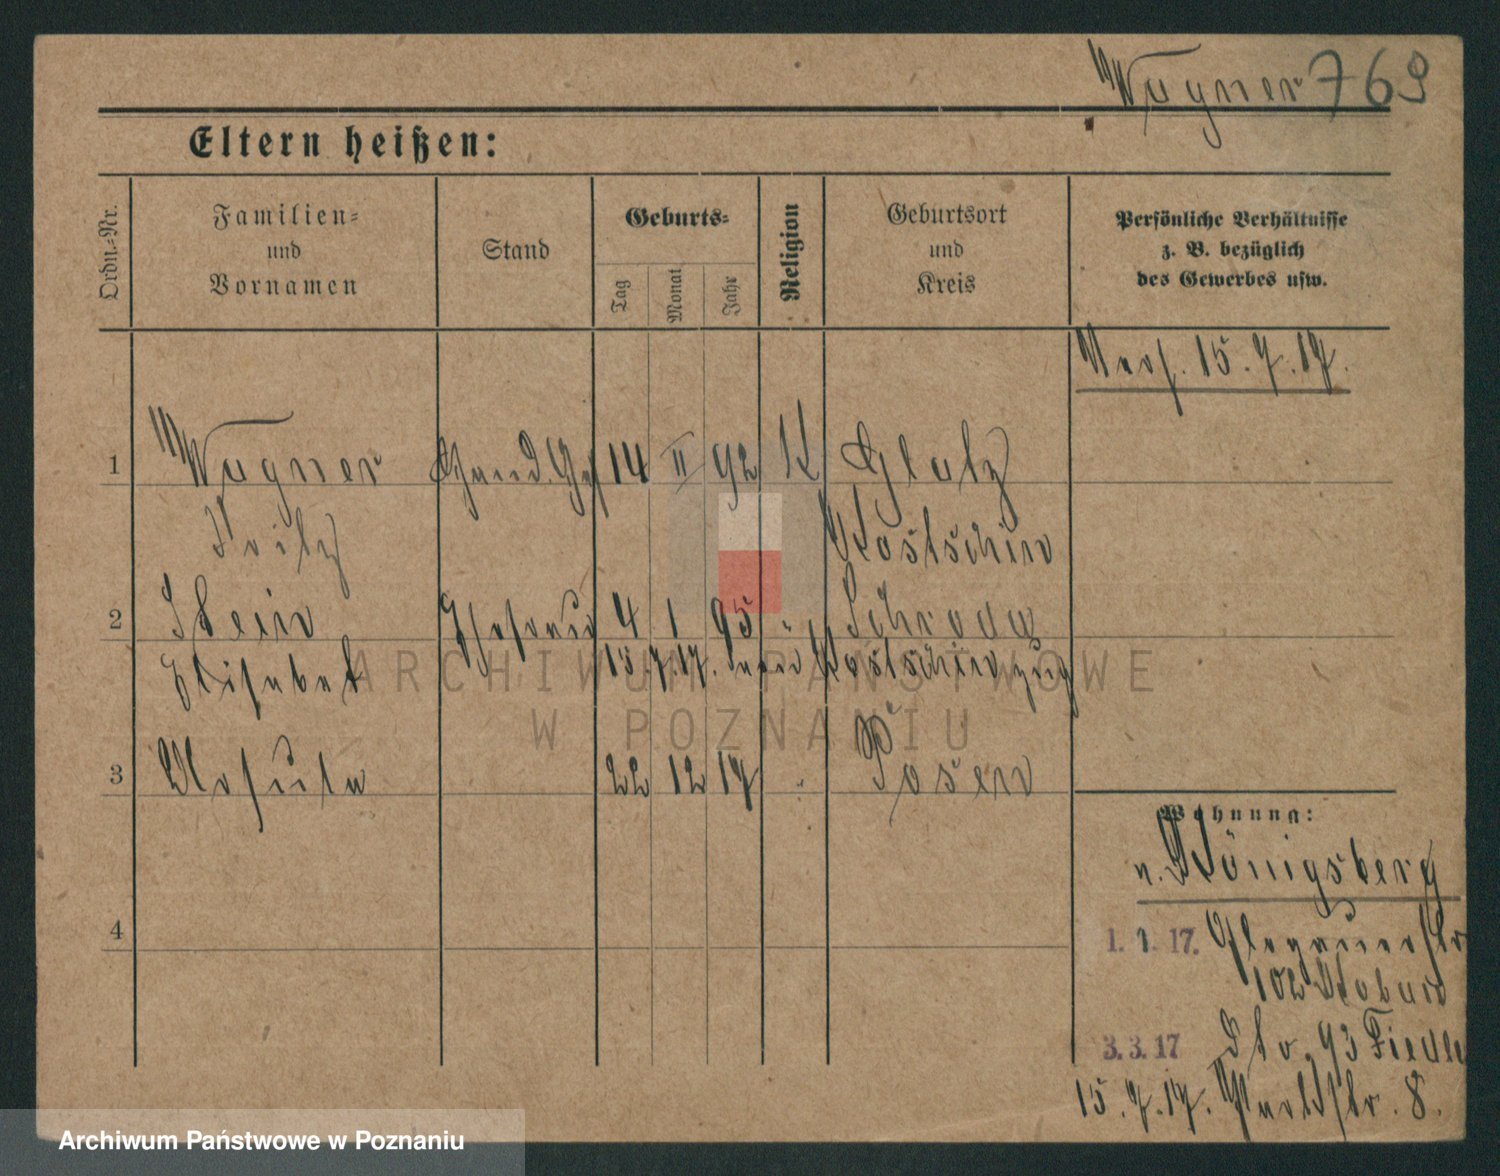 Wagner 769
Eltern heißen:
Ordn.-Nr.
Familien-
und
Vornamen
Stand
Geburts-
Tag
Monat
Jahr
Religion
Geburtsort
und
Kreis
Persönliche Verhältnisse
z. B. bezüglich
des Gewerbes usw.
Verh. 15.7.17.
1 Wagner 14 II 92 K Glatz
Fritz Kostschin
2 Stein Ehefrau 4 1 95 " Schroda
Elisabet 15.7.17. Kostschin zug
3 Ursula 22 12 17 " Posen
4
Wohnung:
v. Königsberg
1. 1. 17. Glogauerstr
102
3. 3. 17 Dto. 93 Fiedle
15.7.17. Parkstr. 8.
ARCHIWUM PAŃSTWOWE
W POZNANIU
Archiwum Państwowe w Poznaniu